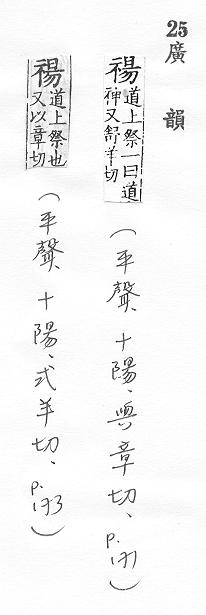 25 廣韻
禓道上祭一曰道
神又舒羊切
(平聲、十陽、與章切、p.171)
禓道上祭也
又以章切
(平聲、十陽、式羊切、p.173)